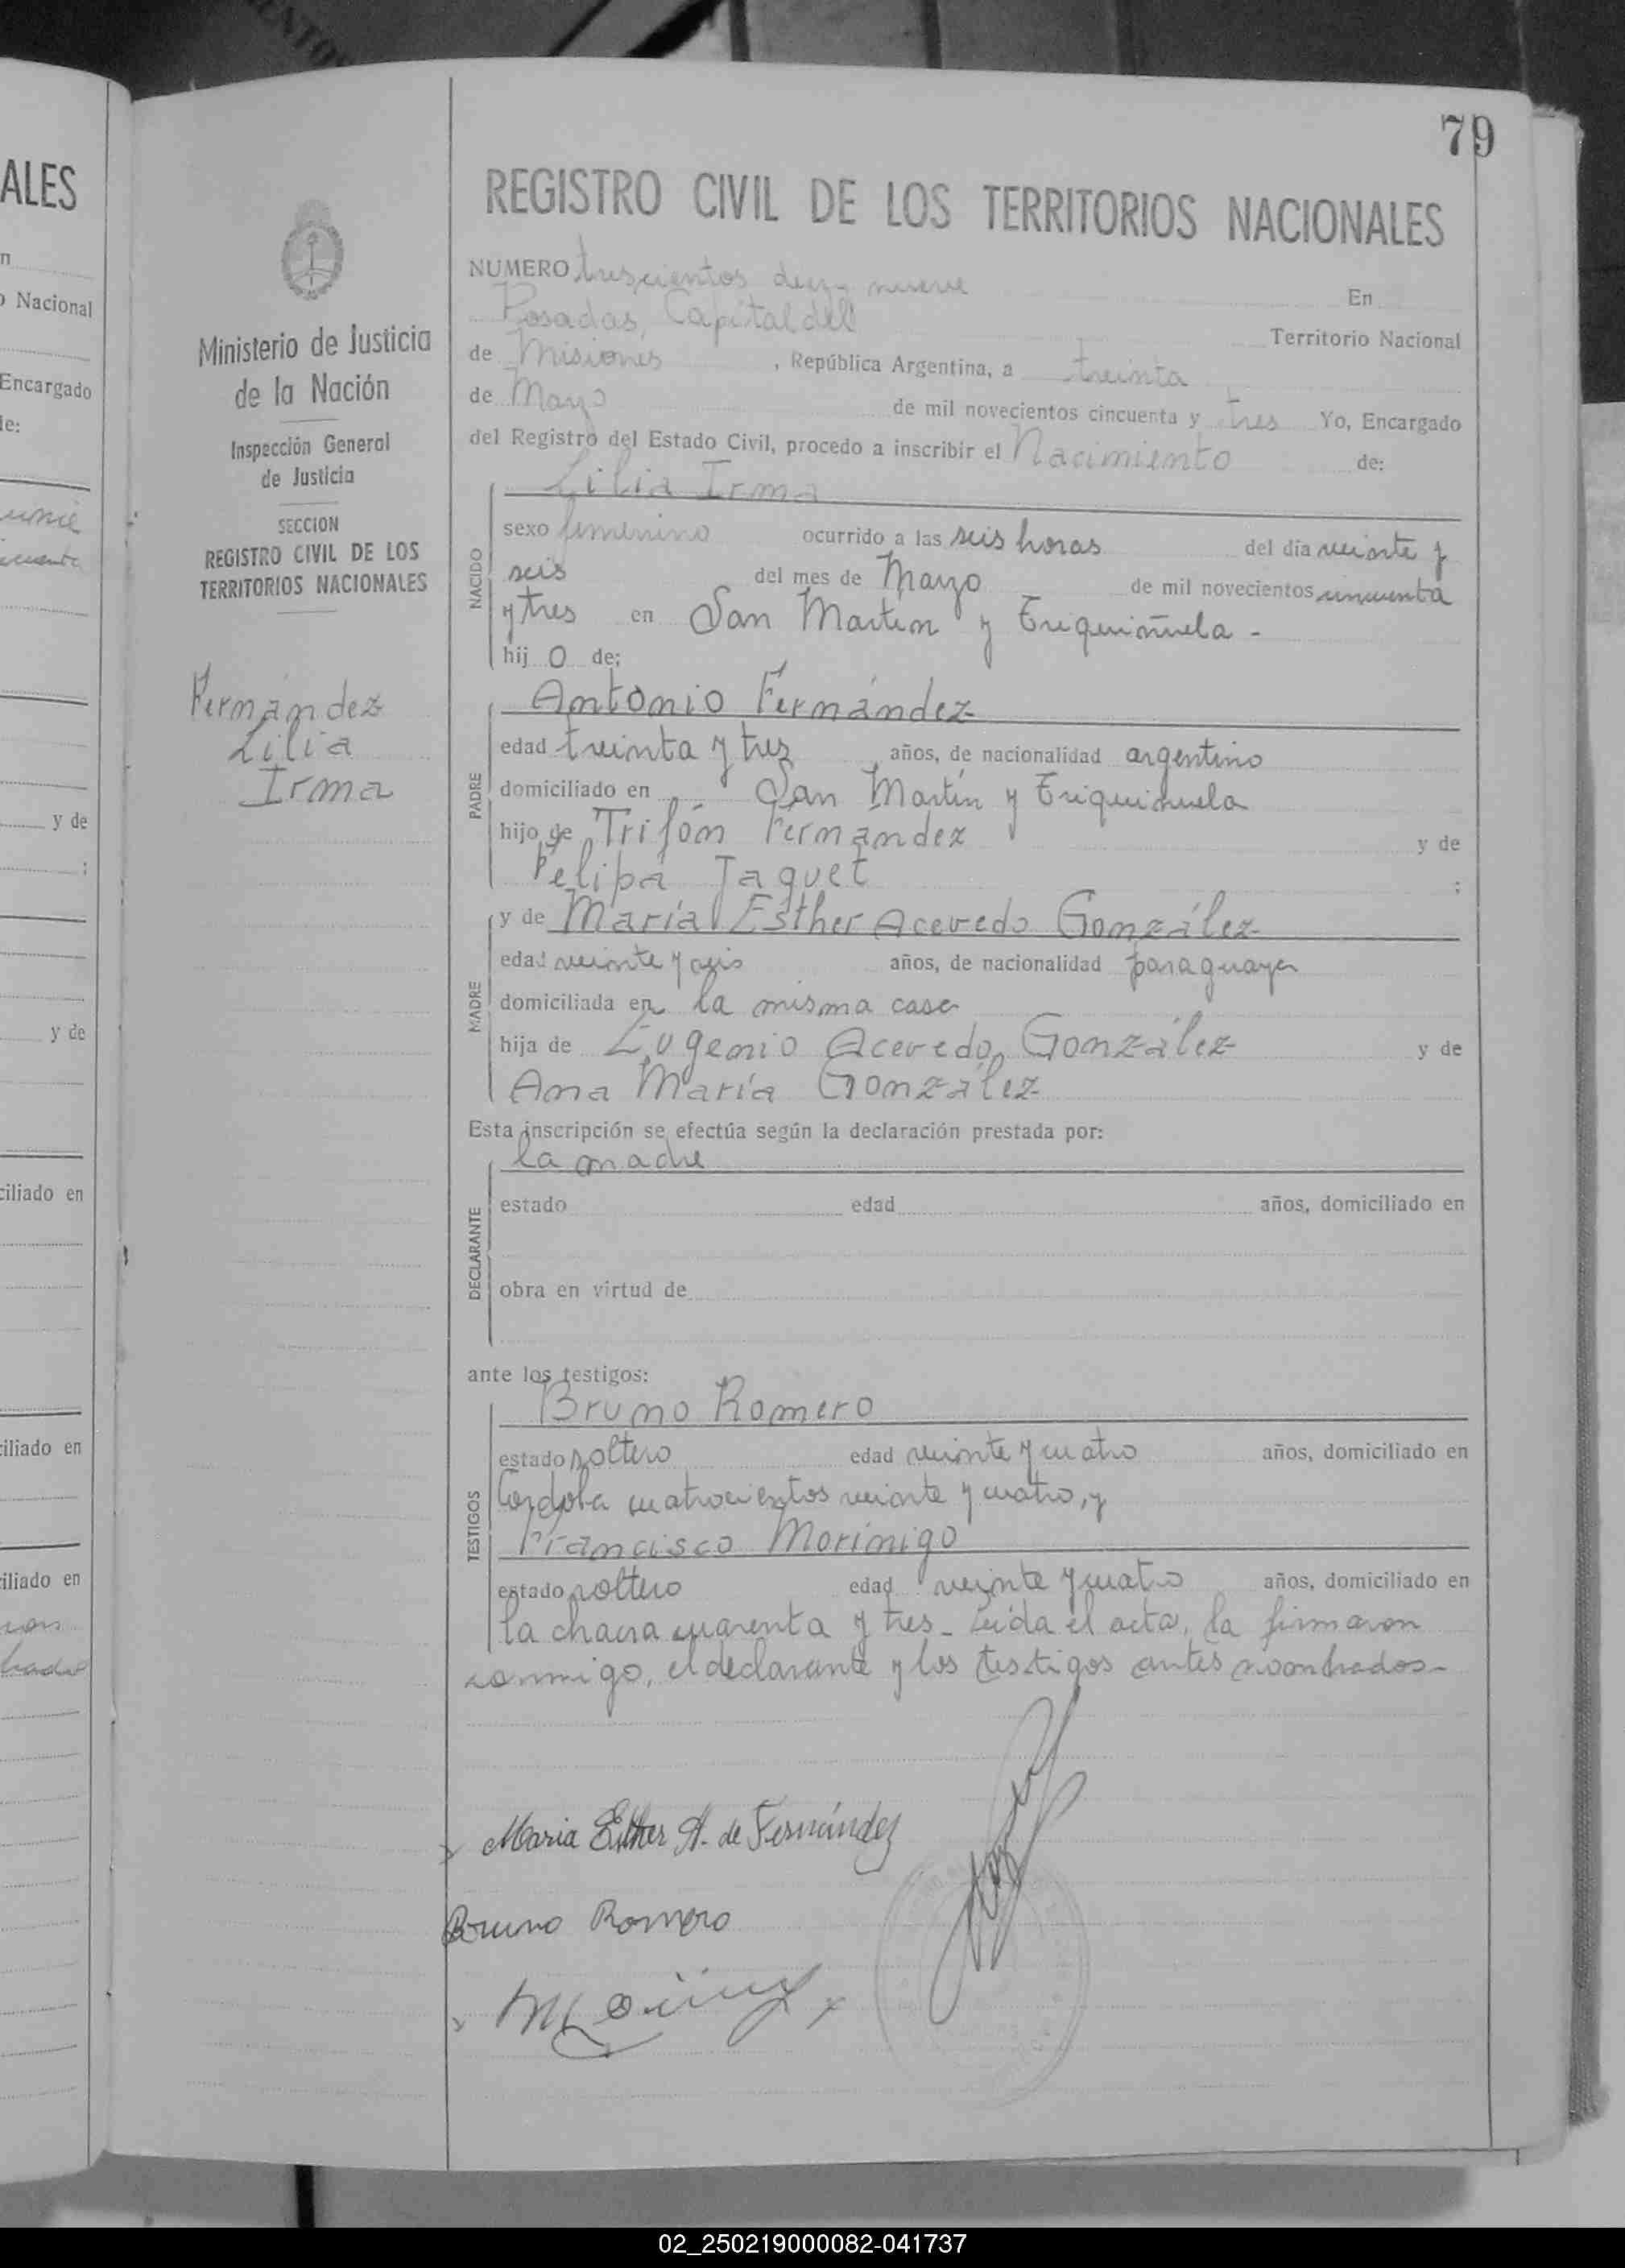 79
REGISTRO CIVIL DE LOS TERRITORIOS NACIONALES
NUMERO trescientos diez y nueve En
Posadas, Capital del Territorio Nacional
de Misiones, República Argentina, a treinta
de Marzo de mil novecientos cincuenta y tres Yo, Encargado
del Registro del Estado Civil, procedo a inscribir el Nacimiento de:
Lilia Irma
NACIDO
sexo femenino ocurrido a las seis horas del día veinte y
seis del mes de Marzo de mil novecientos cincuenta
y tres en San Martín y Eriquiñuela -
hij o de:
Antonio Fernández
PADRE
edad treinta y tres años, de nacionalidad argentino
domiciliado en San Martín y Eriquiñuela
hijo de Trifón Fernandez y de
Felipa Jaquet ;
MADRE
y de María Esther Acevedo González
edad veinte y seis años, de nacionalidad paraguaya
domiciliada en la misma casa
hija de Eugenio Acevedo González y de
Ana María González
Esta inscripción se efectúa según la declaración prestada por:
la madre
DECLARANTE
estado edad años, domiciliado en
obra en virtud de
ante los testigos:
Bruno Romero
TESTIGOS
estado soltero edad veinte y cuatro años, domiciliado en
Córdoba cuatrocientos veinte y cuatro, y
Francisco Morínigo
estado soltero edad veinte y cuatro años, domiciliado en
la chacra cuarenta y tres - Leída el acta, la firmaron
conmigo, el declarante y los testigos antes nombrados -
Maria Esther A. de Fernández
Bruno Romero
Ministerio de Justicia
de la Nación
Inspección General
de Justicia
SECCION
REGISTRO CIVIL DE LOS
TERRITORIOS NACIONALES
Fernández
Lilia
Irma
ALES
n
o Nacional
Encargado
le:
y de
;
y de
ciliado en
ciliado en
iliado en
02_250219000082-041737